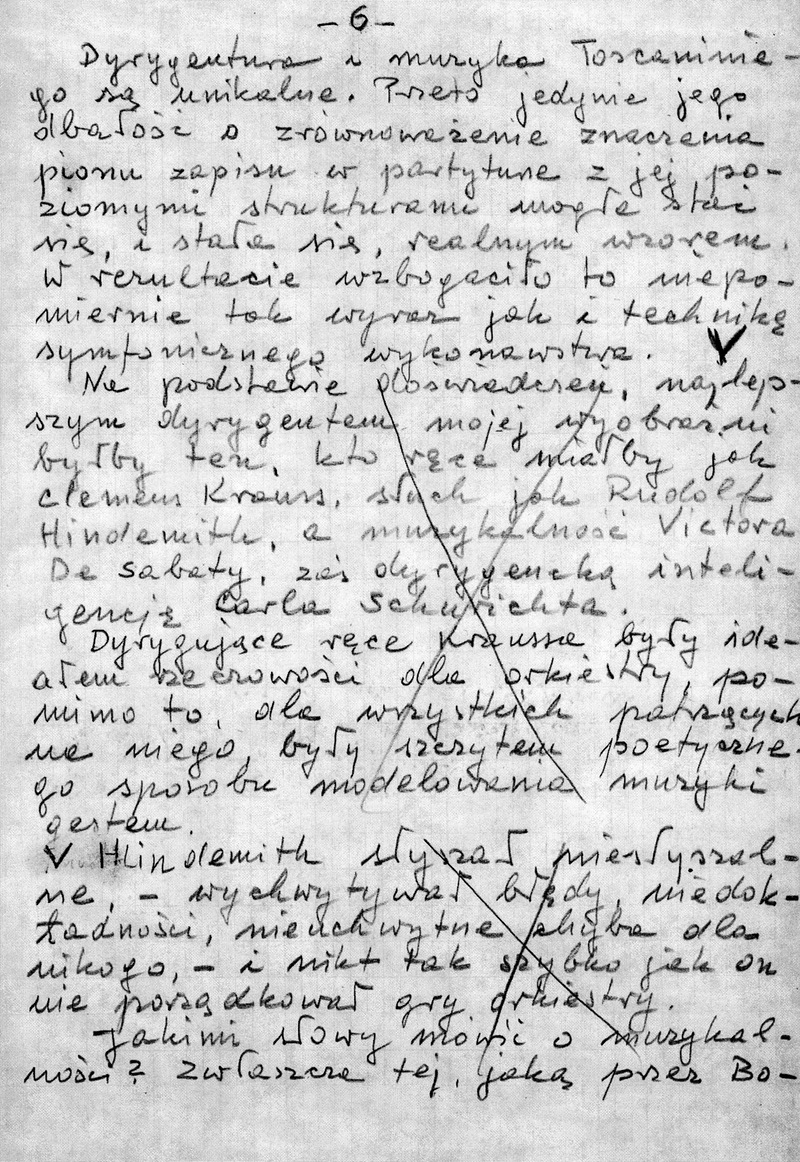 - 6 -
Dyrygentura i muzyka Toscaninie-
go są unikalne. Przeto jedynie jego
dbałość o zrównoważenie znaczenia
pionu zapisu w partyturze z jej po-
ziomymi strukturami mogła stać
się, i stała się, realnym wzorem.
W rezultacie wzbogaciło to niepo-
miernie tak wyraz jak i technikę
symfonicznego wykonawstwa. V
Na podstawie doświadczeń, najlep-
szym dyrygentem mojej wyobraźni
byłby ten, kto ręce miałby jak
Clemens Krauss, słuch jak Rudolf
Hindemith, a muzykalność Victora
De Sabaty, zaś dyrygencką inteli-
gencję Carla Schurichta.
Dyrygujące ręce Kraussa były ide-
ałem rzeczowości dla orkiestry, po-
mimo to, dla wszystkich patrzących
na niego, były szczytem poetyczne-
go sposobu modelowania muzyki
gestem.
V Hindemith słyszał niesłyszal-
ne, - wychwytywał błędy, niedok-
ładności, nieuchwytne chyba dla
nikogo, - i nikt tak szybko jak on
nie porządkował gry orkiestry.
Jakimi słowy mówić o muzykal-
ności? Zwłaszcza tej, jaką przez Bo-